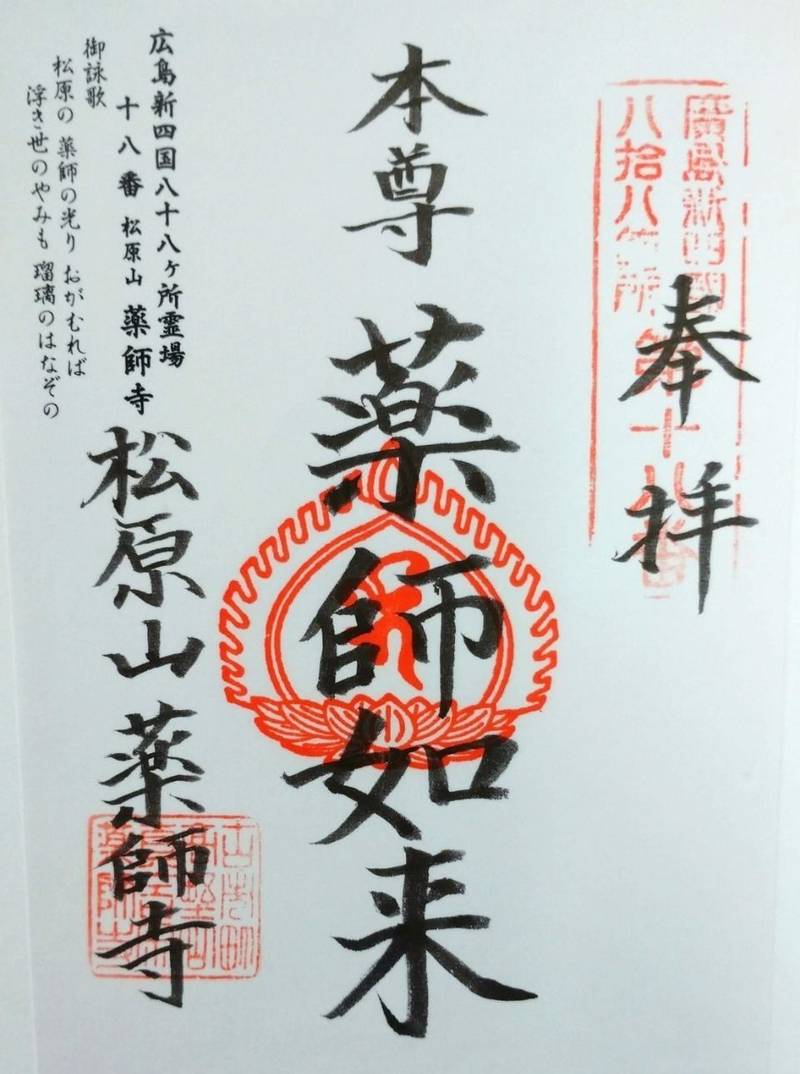 奉拝
廣島新四國
八拾八箇所第十八番
本尊 薬師如来
広島新四国八十八ヶ所霊場
十八番 松原山 薬師寺
御詠歌
松原の 薬師の光り おがむれば
浮き世のやみも 瑠璃のはなぞの
松原山 薬師寺